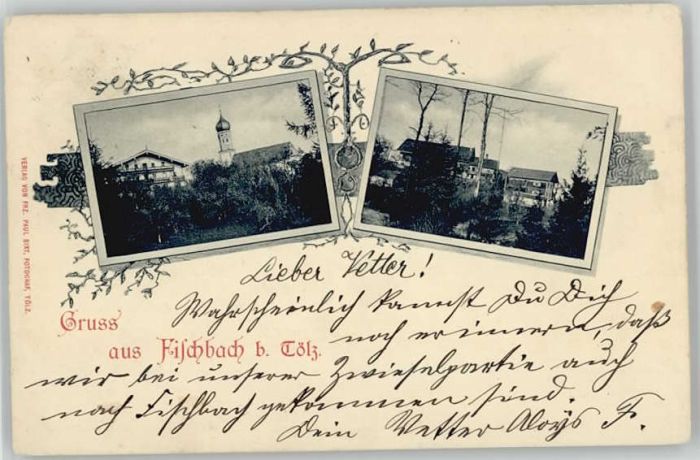 VERLAG VON FRZ. PAUL DIRT, FOTOGRAF, TÖLZ.
Lieber Vetter!
Wahrscheinlich kannst Du Dich
noch erinnern, daß
Gruss
aus Fischbach b. Tölz.
wir bei unserer Zwieselpartie auch
nach Fischbach gekommen sind.
Dein Vetter Aloys F.